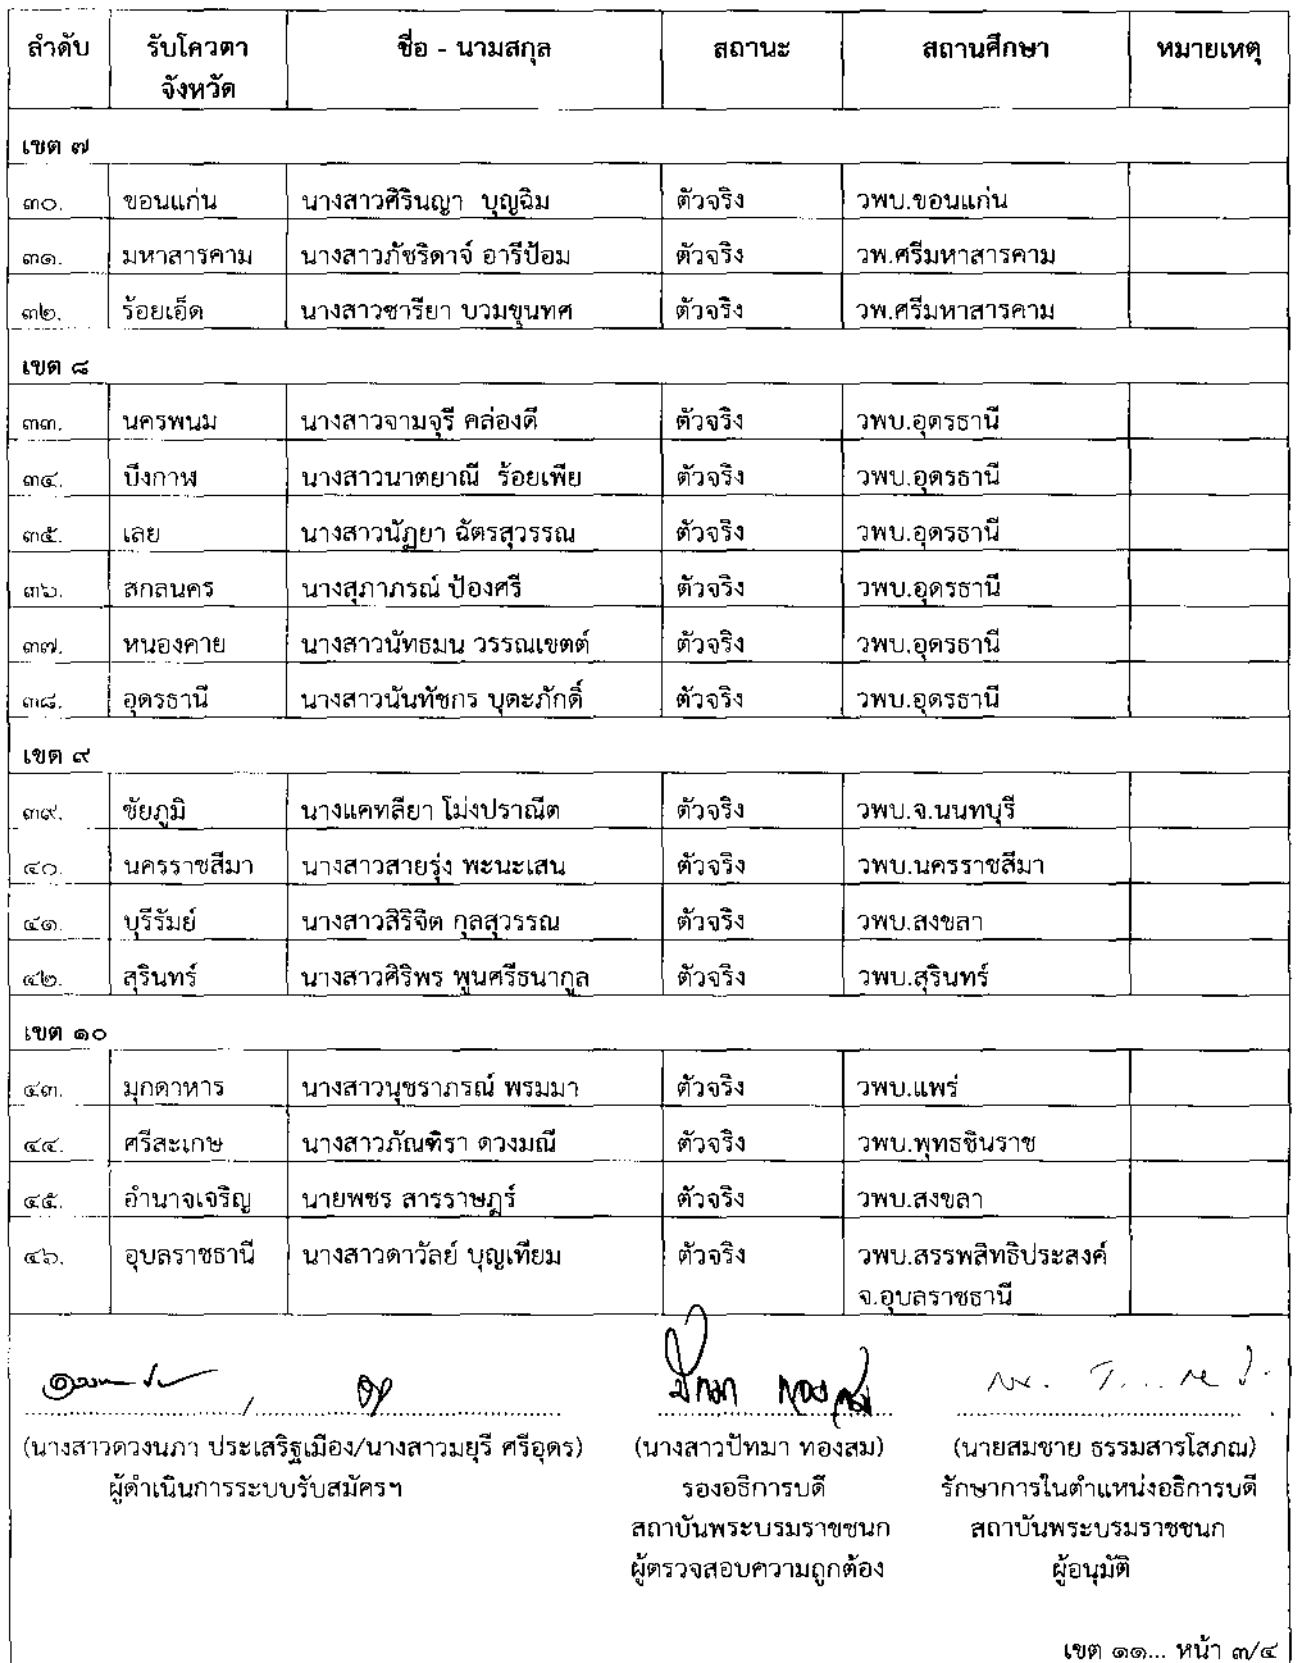 ลำดับ รับโควตา ชื่อ - นามสกุล สถานะ สถานศึกษา หมายเหตุ
จังหวัด
เขต ๗
๓๐. ขอนแก่น นางสาวศิรินญา บุญฉิม ตัวจริง วพบ.ขอนแก่น
๓๑. มหาสารคาม นางสาวภัชริดาจ์ อารีป้อม ตัวจริง วพ.ศรีมหาสารคาม
๓๒. ร้อยเอ็ด นางสาวชารียา บวมขุนทศ ตัวจริง วพ.ศรีมหาสารคาม
เขต ๘
๓๓. นครพนม นางสาวจามจุรี คล่องดี ตัวจริง วพบ.อุดรธานี
๓๔. บึงกาฬ นางสาวนาตยาณี ร้อยเพีย ตัวจริง วพบ.อุดรธานี
๓๕. เลย นางสาวนัฏยา ฉัตรสุวรรณ ตัวจริง วพบ.อุดรธานี
๓๖. สกลนคร นางสุภาภรณ์ ป้องศรี ตัวจริง วพบ.อุดรธานี
๓๗. หนองคาย นางสาวนัทธมน วรรณเขตต์ ตัวจริง วพบ.อุดรธานี
๓๘. อุดรธานี นางสาวนันทัชกร บุตะภักดิ์ ตัวจริง วพบ.อุดรธานี
เขต ๙
๓๙. ชัยภูมิ นางแคทลียา โม่งปราณีต ตัวจริง วพบ.จ.นนทบุรี
๔๐. นครราชสีมา นางสาวสายรุ่ง พะนะเสน ตัวจริง วพบ.นครราชสีมา
๔๑. บุรีรัมย์ นางสาวสิริจิต กุลสุวรรณ ตัวจริง วพบ.สงขลา
๔๒. สุรินทร์ นางสาวศิริพร พูนศรีธนากูล ตัวจริง วพบ.สุรินทร์
เขต ๑๐
๔๓. มุกดาหาร นางสาวนุชราภรณ์ พรมมา ตัวจริง วพบ.แพร่
๔๔. ศรีสะเกษ นางสาวภัณฑิรา ดวงมณี ตัวจริง วพบ.พุทธชินราช
๔๕. อำนาจเจริญ นายพชร สารราษฎร์ ตัวจริง วพบ.สงขลา
๔๖. อุบลราชธานี นางสาวดาวัลย์ บุญเทียม ตัวจริง วพบ.สรรพสิทธิประสงค์
จ.อุบลราชธานี
ปัทมา ทองสม
(นางสาวดวงนภา ประเสริฐเมือง/นางสาวมยุรี ศรีอุดร) (นางสาวปัทมา ทองสม) (นายสมชาย ธรรมสารโสภณ)
ผู้ดำเนินการระบบรับสมัครฯ รองอธิการบดี รักษาการในตำแหน่งอธิการบดี
สถาบันพระบรมราชชนก สถาบันพระบรมราชชนก
ผู้ตรวจสอบความถูกต้อง ผู้อนุมัติ
เขต ๑๑... หน้า ๓/๔